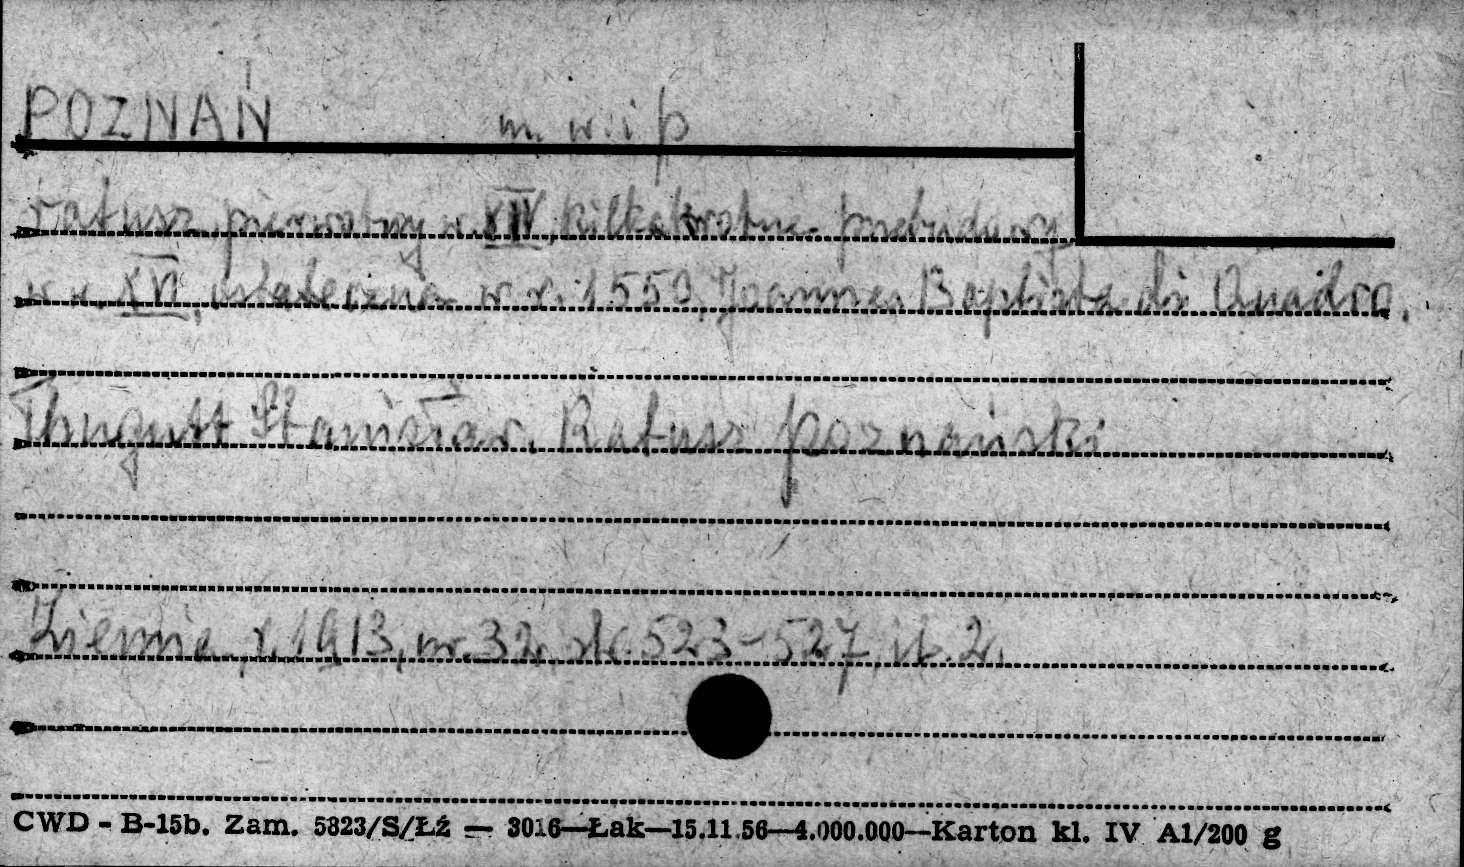 POZNAŃ m. w. i p
ratusz pierwotny w. XIV, kilkakrotnie przebudowy
w w. XVI, ostatecznie w r. 1550 Joannes Baptista di Quadro.
Thugutt Stanisław. Ratusz poznański
Ziemia, r. 1913, nr. 32, str. 523-527, il. 2.
CWD - B-15b. Zam. 5823/S/Łź — 3016—Łak—15.11.56—4.000.000—Karton kl. IV A1/200 g